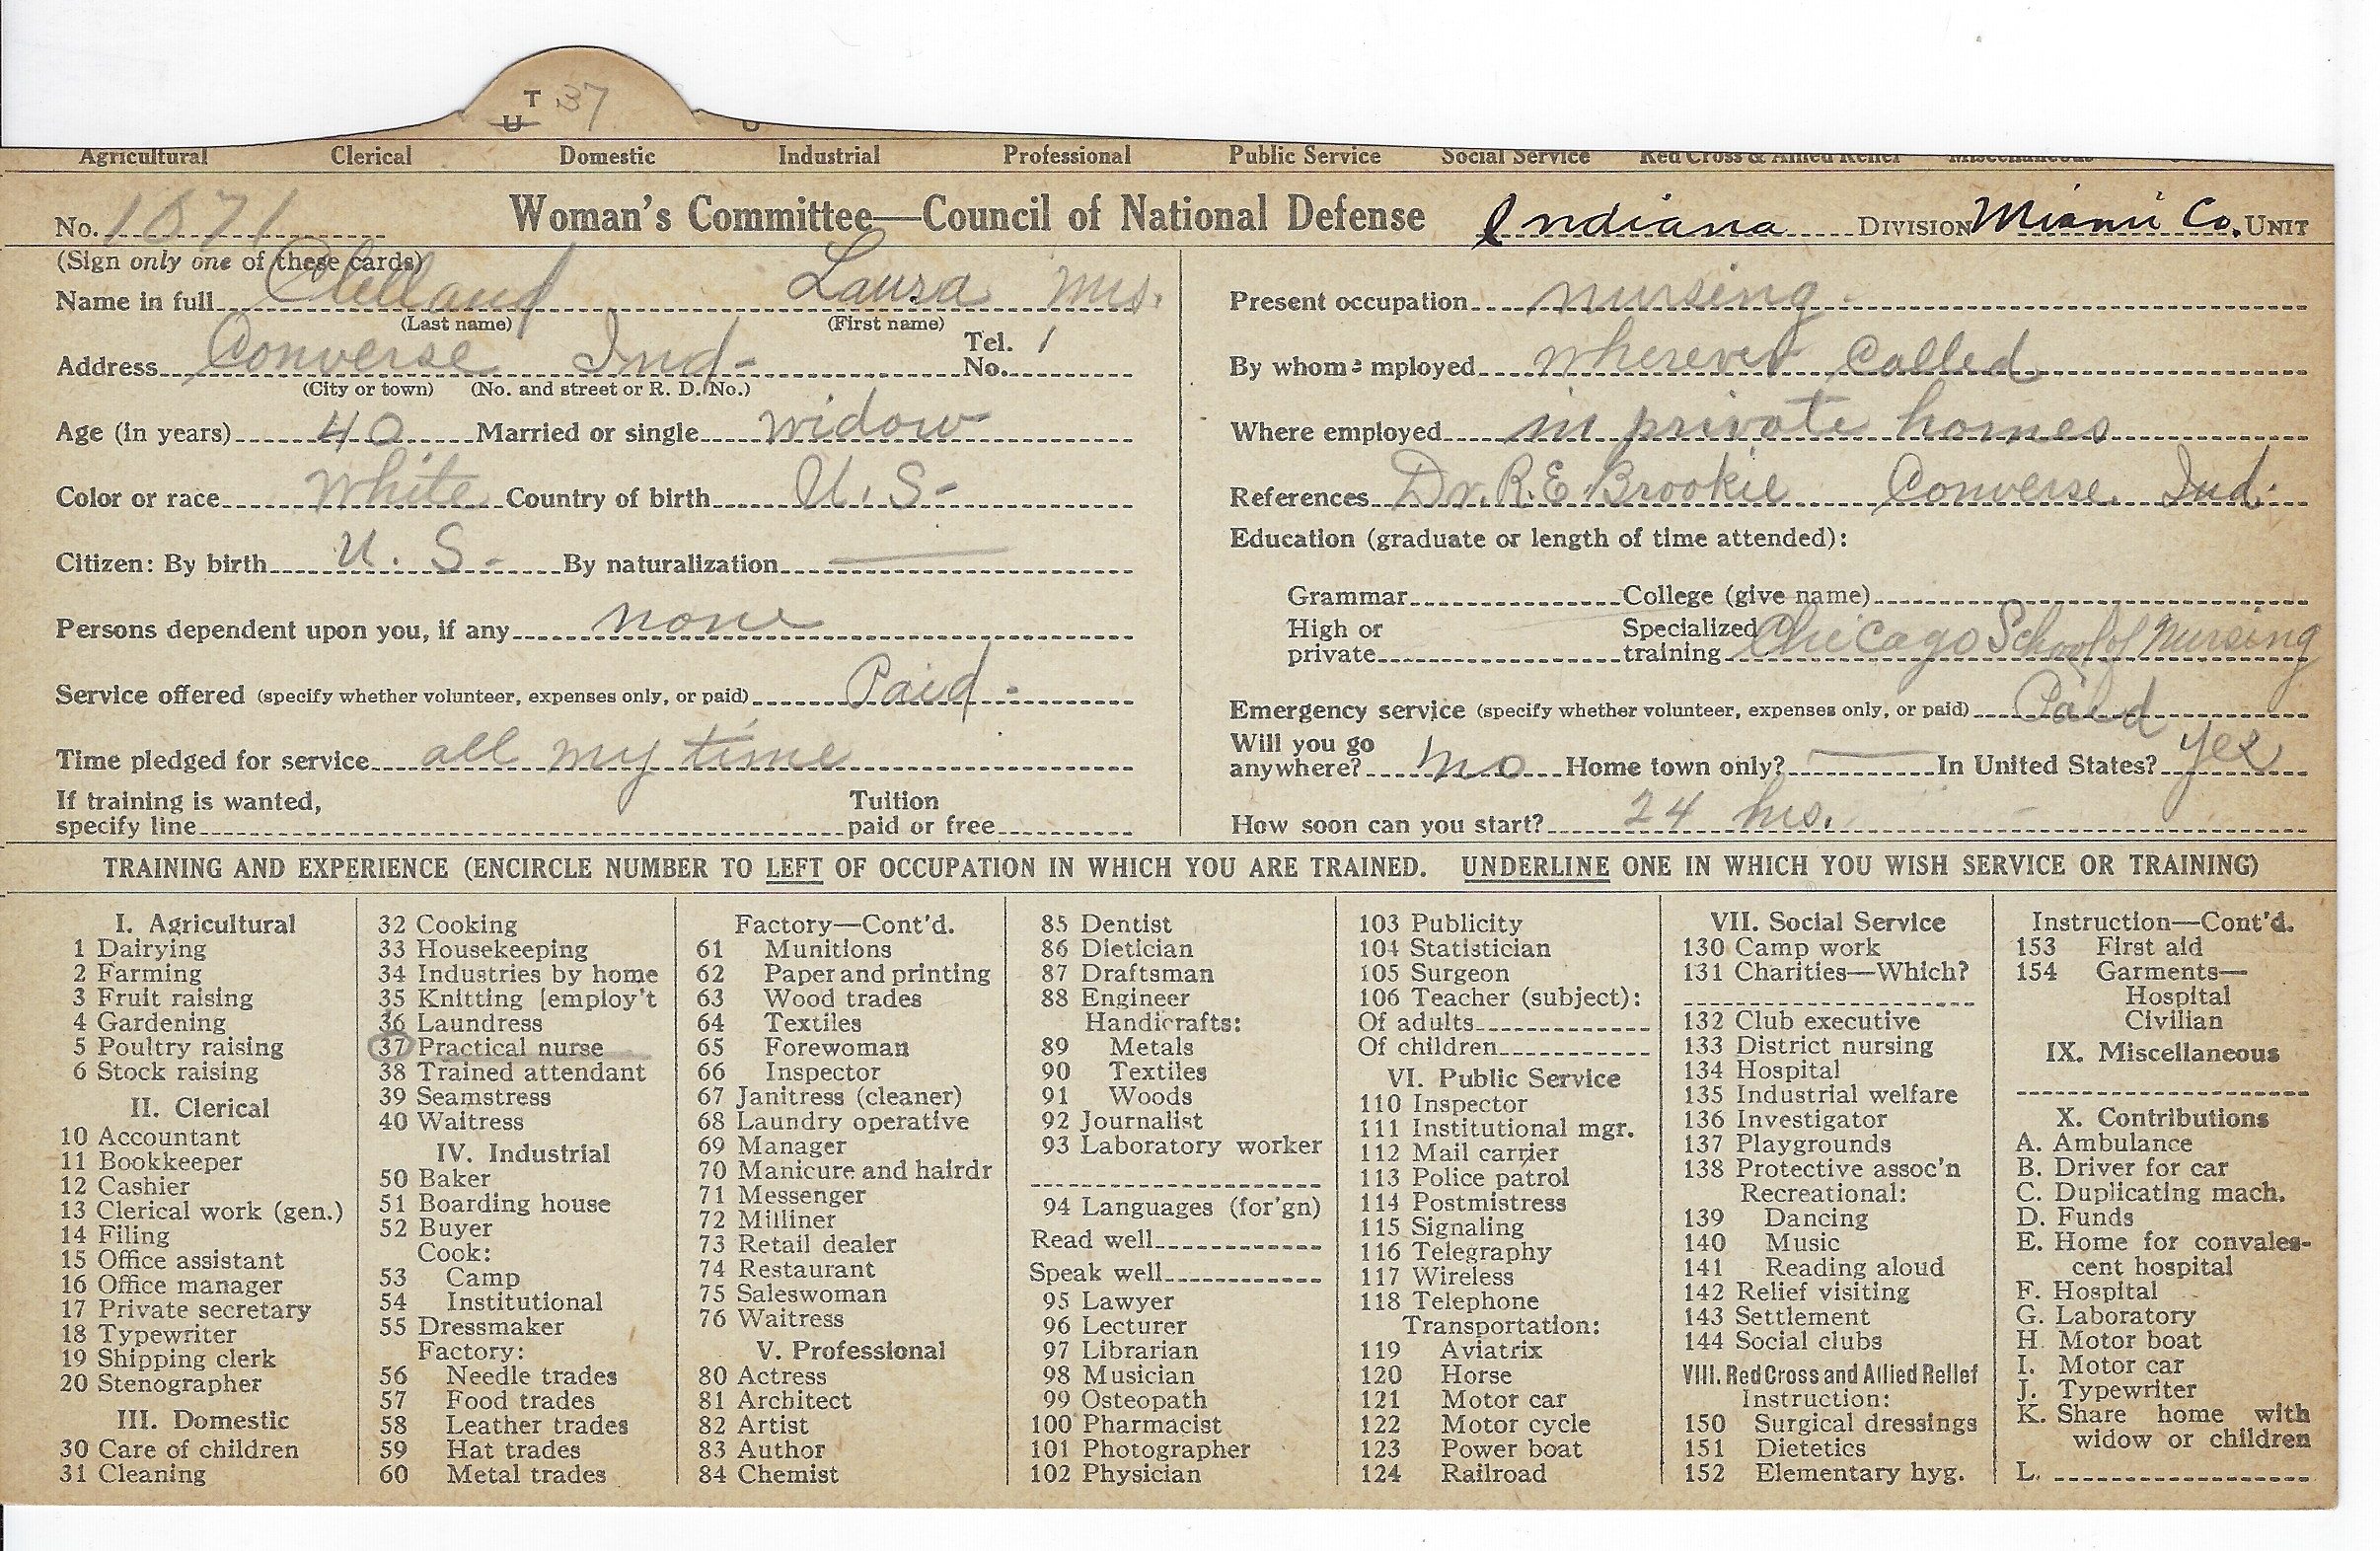 T 37
U
Agricultural Clerical Domestic Industrial Professional Public Service Social Service Red Cross & Allied Relief Miscellaneous
No. 1571 Woman's Committee—Council of National Defense Indiana DIVISION Miami Co. UNIT
(Sign only one of these cards)
Name in full Clelland Laura Mrs.
(Last name) (First name)
Address Converse Ind- Tel. No. 1
(City or town) (No. and street or R. D. No.)
Age (in years) 40 Married or single widow
Color or race White Country of birth U.S-
Citizen: By birth U.S- By naturalization —
Persons dependent upon you, if any none
Service offered (specify whether volunteer, expenses only, or paid) Paid-
Time pledged for service all my time
If training is wanted,
specify line Tuition paid or free
Present occupation nursing-
By whom employed wherever called
Where employed in private homes
References Dr. R.E. Brookie Converse. Ind.
Education (graduate or length of time attended):
Grammar College (give name)
High or private Specialized training Chicago School of Nursing
Emergency service (specify whether volunteer, expenses only, or paid) Paid
Will you go anywhere? no Home town only? — In United States? yes
How soon can you start? 24 hrs.
TRAINING AND EXPERIENCE (ENCIRCLE NUMBER TO LEFT OF OCCUPATION IN WHICH YOU ARE TRAINED. UNDERLINE ONE IN WHICH YOU WISH SERVICE OR TRAINING)
I. Agricultural
1 Dairying
2 Farming
3 Fruit raising
4 Gardening
5 Poultry raising
6 Stock raising
II. Clerical
10 Accountant
11 Bookkeeper
12 Cashier
13 Clerical work (gen.)
14 Filing
15 Office assistant
16 Office manager
17 Private secretary
18 Typewriter
19 Shipping clerk
20 Stenographer
III. Domestic
30 Care of children
31 Cleaning
32 Cooking
33 Housekeeping
34 Industries by home
35 Knitting [employ't
36 Laundress
37 Practical nurse
38 Trained attendant
39 Seamstress
40 Waitress
IV. Industrial
50 Baker
51 Boarding house
52 Buyer
Cook:
53 Camp
54 Institutional
55 Dressmaker
Factory:
56 Needle trades
57 Food trades
58 Leather trades
59 Hat trades
60 Metal trades
Factory—Cont'd.
61 Munitions
62 Paper and printing
63 Wood trades
64 Textiles
65 Forewoman
66 Inspector
67 Janitress (cleaner)
68 Laundry operative
69 Manager
70 Manicure and hairdr
71 Messenger
72 Milliner
73 Retail dealer
74 Restaurant
75 Saleswoman
76 Waitress
V. Professional
80 Actress
81 Architect
82 Artist
83 Author
84 Chemist
85 Dentist
86 Dietician
87 Draftsman
88 Engineer
Handicrafts:
89 Metals
90 Textiles
91 Woods
92 Journalist
93 Laboratory worker
94 Languages (for'gn)
Read well
Speak well
95 Lawyer
96 Lecturer
97 Librarian
98 Musician
99 Osteopath
100 Pharmacist
101 Photographer
102 Physician
103 Publicity
104 Statistician
105 Surgeon
106 Teacher (subject):
Of adults
Of children
VI. Public Service
110 Inspector
111 Institutional mgr.
112 Mail carrier
113 Police patrol
114 Postmistress
115 Signaling
116 Telegraphy
117 Wireless
118 Telephone
Transportation:
119 Aviatrix
120 Horse
121 Motor car
122 Motor cycle
123 Power boat
124 Railroad
VII. Social Service
130 Camp work
131 Charities—Which?
132 Club executive
133 District nursing
134 Hospital
135 Industrial welfare
136 Investigator
137 Playgrounds
138 Protective assoc'n
Recreational:
139 Dancing
140 Music
141 Reading aloud
142 Relief visiting
143 Settlement
144 Social clubs
VIII. Red Cross and Allied Relief
Instruction:
150 Surgical dressings
151 Dietetics
152 Elementary hyg.
Instruction—Cont'd.
153 First aid
154 Garments—
Hospital
Civilian
IX. Miscellaneous
X. Contributions
A. Ambulance
B. Driver for car
C. Duplicating mach.
D. Funds
E. Home for convales-
cent hospital
F. Hospital
G. Laboratory
H. Motor boat
I. Motor car
J. Typewriter
K. Share home with
widow or children
L.